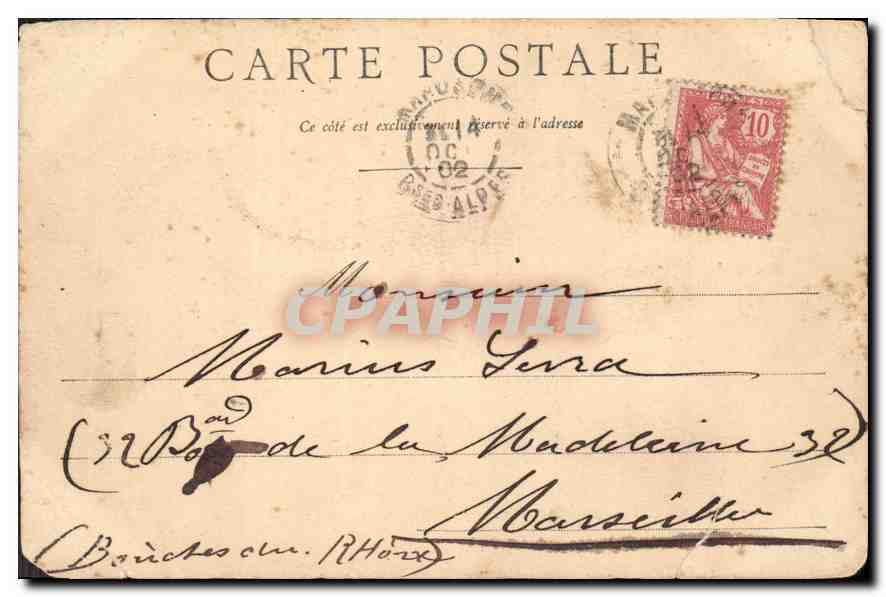 CARTE POSTALE
Ce côté est exclusivement réservé à l'adresse
OC
02
Bses ALPES
10
CPAPHIL
Monsieur
Marius Serra
(32 Bard de la Madeleine 32)
Marseille
(Bouches du. RHône)